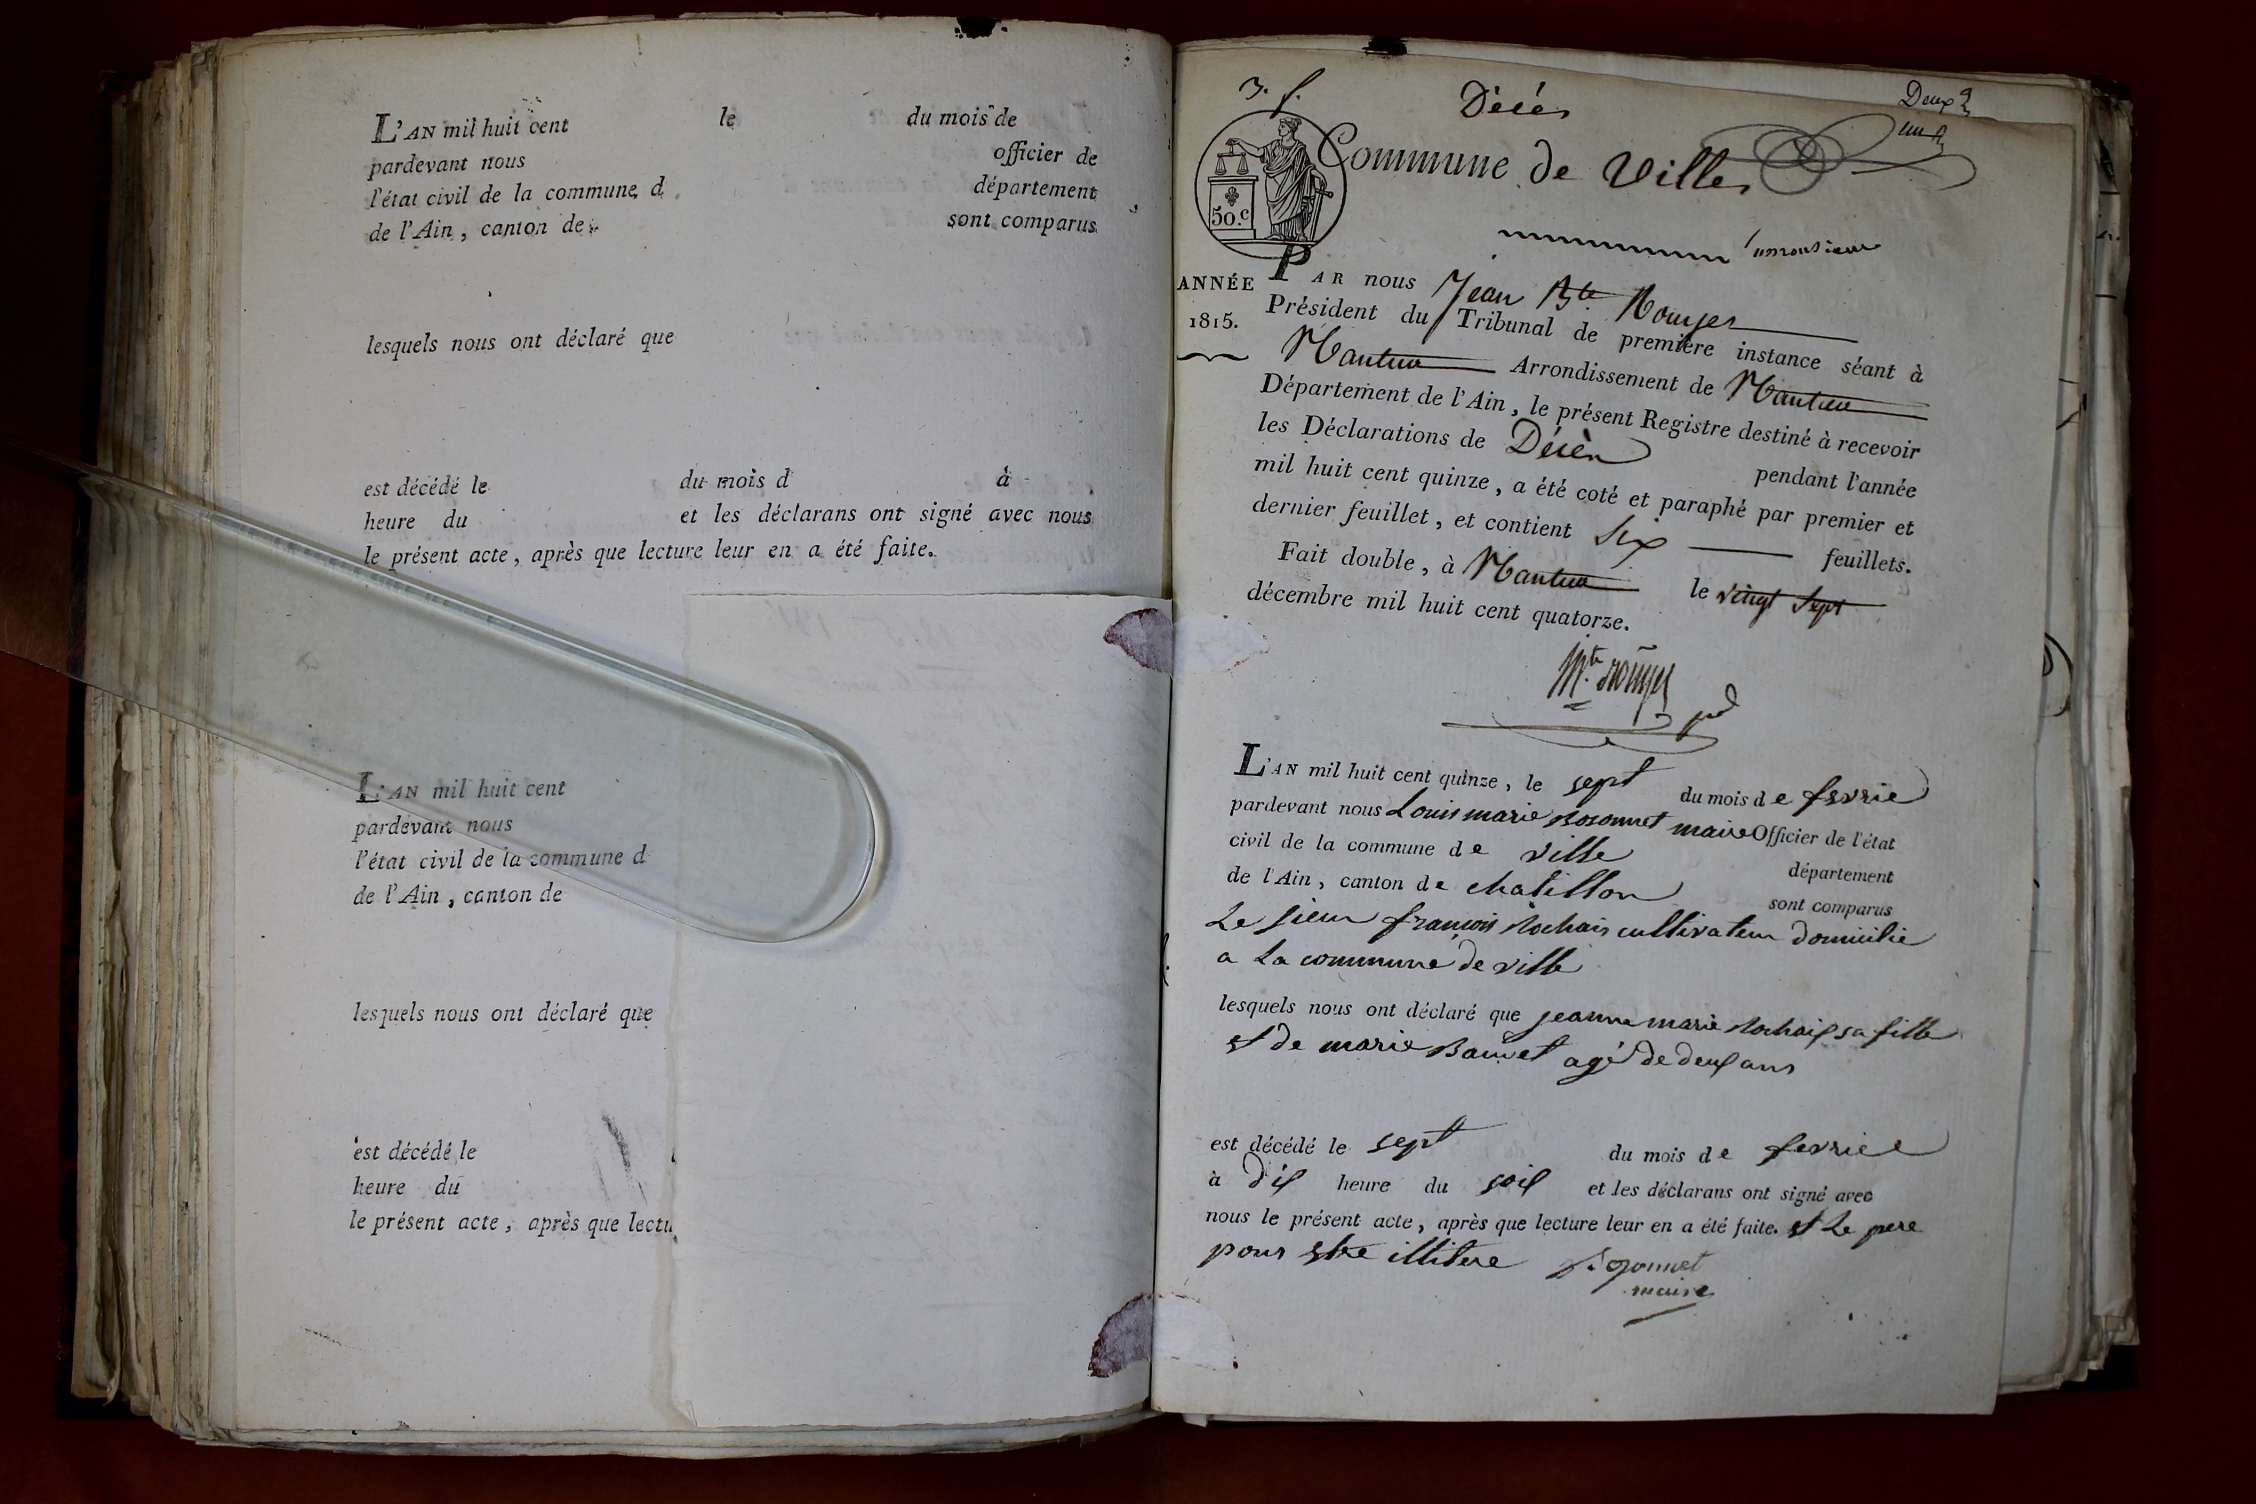 L'AN mil huit cent le du mois de
pardevant nous officier de
l'état civil de la commune d département
de l'Ain, canton de sont comparus
lesquels nous ont déclaré que
est décédé le du mois d à
heure du et les déclarans ont signé avec nous
le présent acte, après que lecture leur en a été faite.
L'AN mil huit cent
pardevant nous
l'état civil de la commune d
de l'Ain, canton de
lesquels nous ont déclaré que
est décédé le
heure du
le présent acte, après que lectu
3. f.
Décès
Deux
un
Commune de Ville
50.c
ANNÉE
1815.
PAR nous Jean Bte Rouyer
Président du Tribunal de première instance séant à
Nantua Arrondissement de Nantua
Département de l'Ain, le présent Registre destiné à recevoir
les Déclarations de Décès pendant l'année
mil huit cent quinze, a été coté et paraphé par premier et
dernier feuillet, et contient six feuillets.
Fait double, à Nantua le vingt sept
décembre mil huit cent quatorze.
L'AN mil huit cent quinze, le sept du mois de fevrie
pardevant nous Louis marie maire Officier de l'état
civil de la commune de ville département
de l'Ain, canton de chatillon sont comparus
Le sieur françois Rochaix cultivateur domicilie
a La commune de ville
lesquels nous ont déclaré que jeanne marie Rochaix sa fille
et de marie agé de deux ans
est décédé le sept du mois de fevrier
à dix heure du soir et les déclarans ont signé avec
nous le présent acte, après que lecture leur en a été faite. et Le pere
pour etre illitere
maire